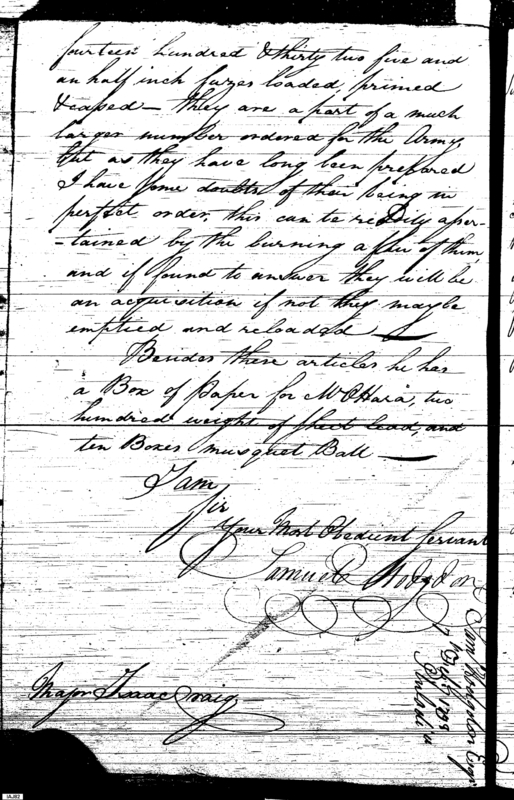 fourteen hundred & thirty two five and
an half inch fuzes loaded, primed
& caped — they are a part of a much
larger number ordered for the Army,
but as they have long been prepared
I have some doubts of their being in
perfect order, this can be readily asper-
-tained by the burning a few of them,
and if found to answer they will be
an acquisition if not they may be
emptied and reloaded —
Besides these articles he has
a Box of Paper for Mr OHara, two
hundred weight of sheet lead, and
ten Boxes musquet Ball —
I am
Sir
Your Most Obedient Servant
Samuel Hodgdon
Major Isaac Craig
Sam Hodgdon Esqr
IAJ92